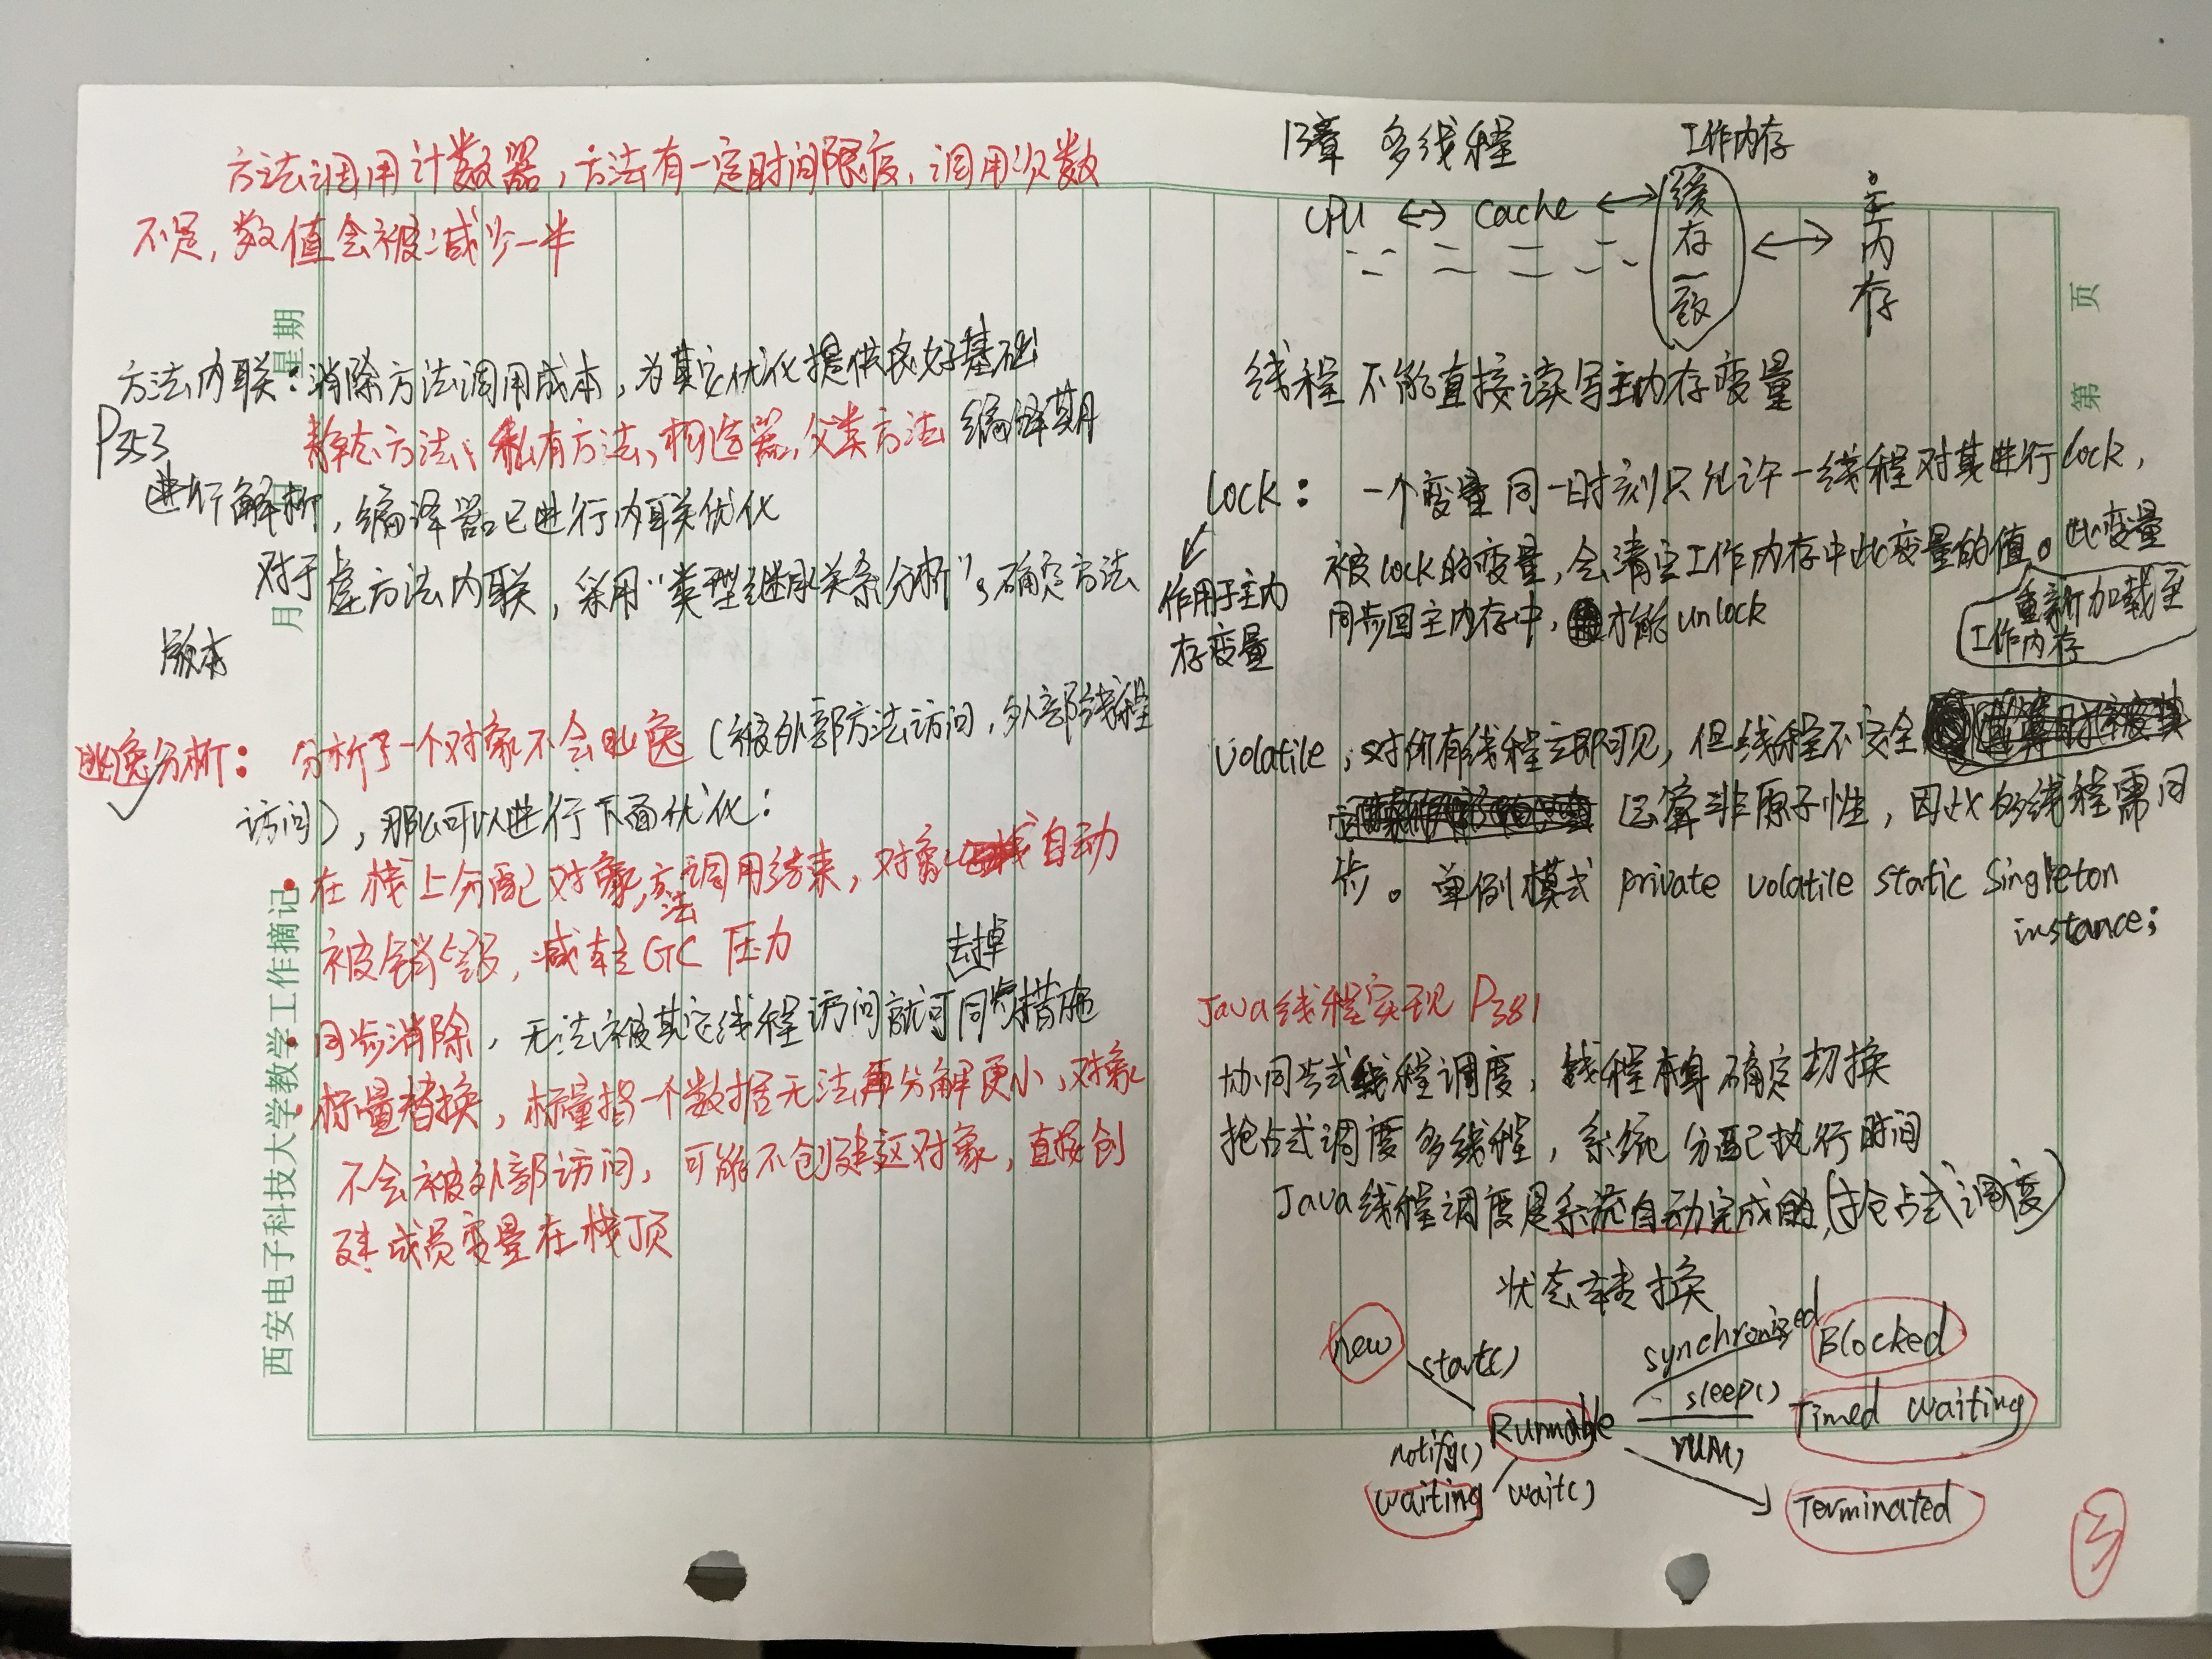 方法调用计数器，方法有一定时间限度，调用次数
不足，数值会被减少一半
方法内联：消除方法调用成本，为其它优化提供良好基础
P353
静态方法、私有方法、构造器，父类方法 编译期
进行解析，编译器已进行内联优化
对于虚方法内联，采用“类型继承关系分析”，确定方法
版本
逃逸分析： 分析了一个对象不会逃逸（被外部方法访问，外部线程
访问），那么可以进行下面优化：
在栈上分配对象，方法调用结束，对象自动
被销毁，减轻GC 压力
去掉
同步消除，无法被其它线程访问就可同步措施
标量替换，标量指一个数据无法再分解更小，对象
不会被外部访问，可能不创建这对象，直接创
建成员变量在栈顶
西安电子科技大学教学工作摘记
月 日 星期
13章 多线程 工作内存
CPU ↔ Cache ↔ 缓存一致 ↔ 主内存
线程不能直接读写主内存变量
lock： 一个变量同一时刻只允许一线程对其进行lock，
被lock的变量，会清空工作内存中此变量的值。此变量
重新加载至
工作内存
作用于主内
存变量
同步回主内存中，才能unlock
volatile；对所有线程立即可见，但线程不安全
运算非原子性，因此多线程需同
步。单例模式 private volatile static Singleton
instance;
Java线程实现 P381
协同式线程调度，线程本身确定切换
抢占式调度多线程，系统分配执行时间
Java线程调度是系统自动完成的，（抢占式调度）
状态转换
new start() synchronized Blocked
sleep() Timed waiting
Runnable
notify() run()
waiting wait() Terminated
第 页
3